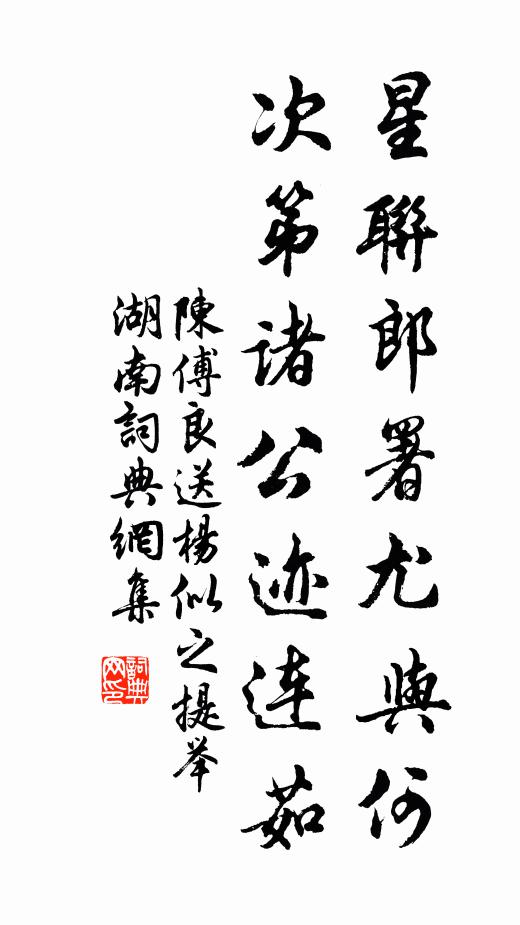 星聯郎署尤與何
次第諸公迹連茹
陳傅良送楊似之提举
湖南詞典網集
詞典
网印